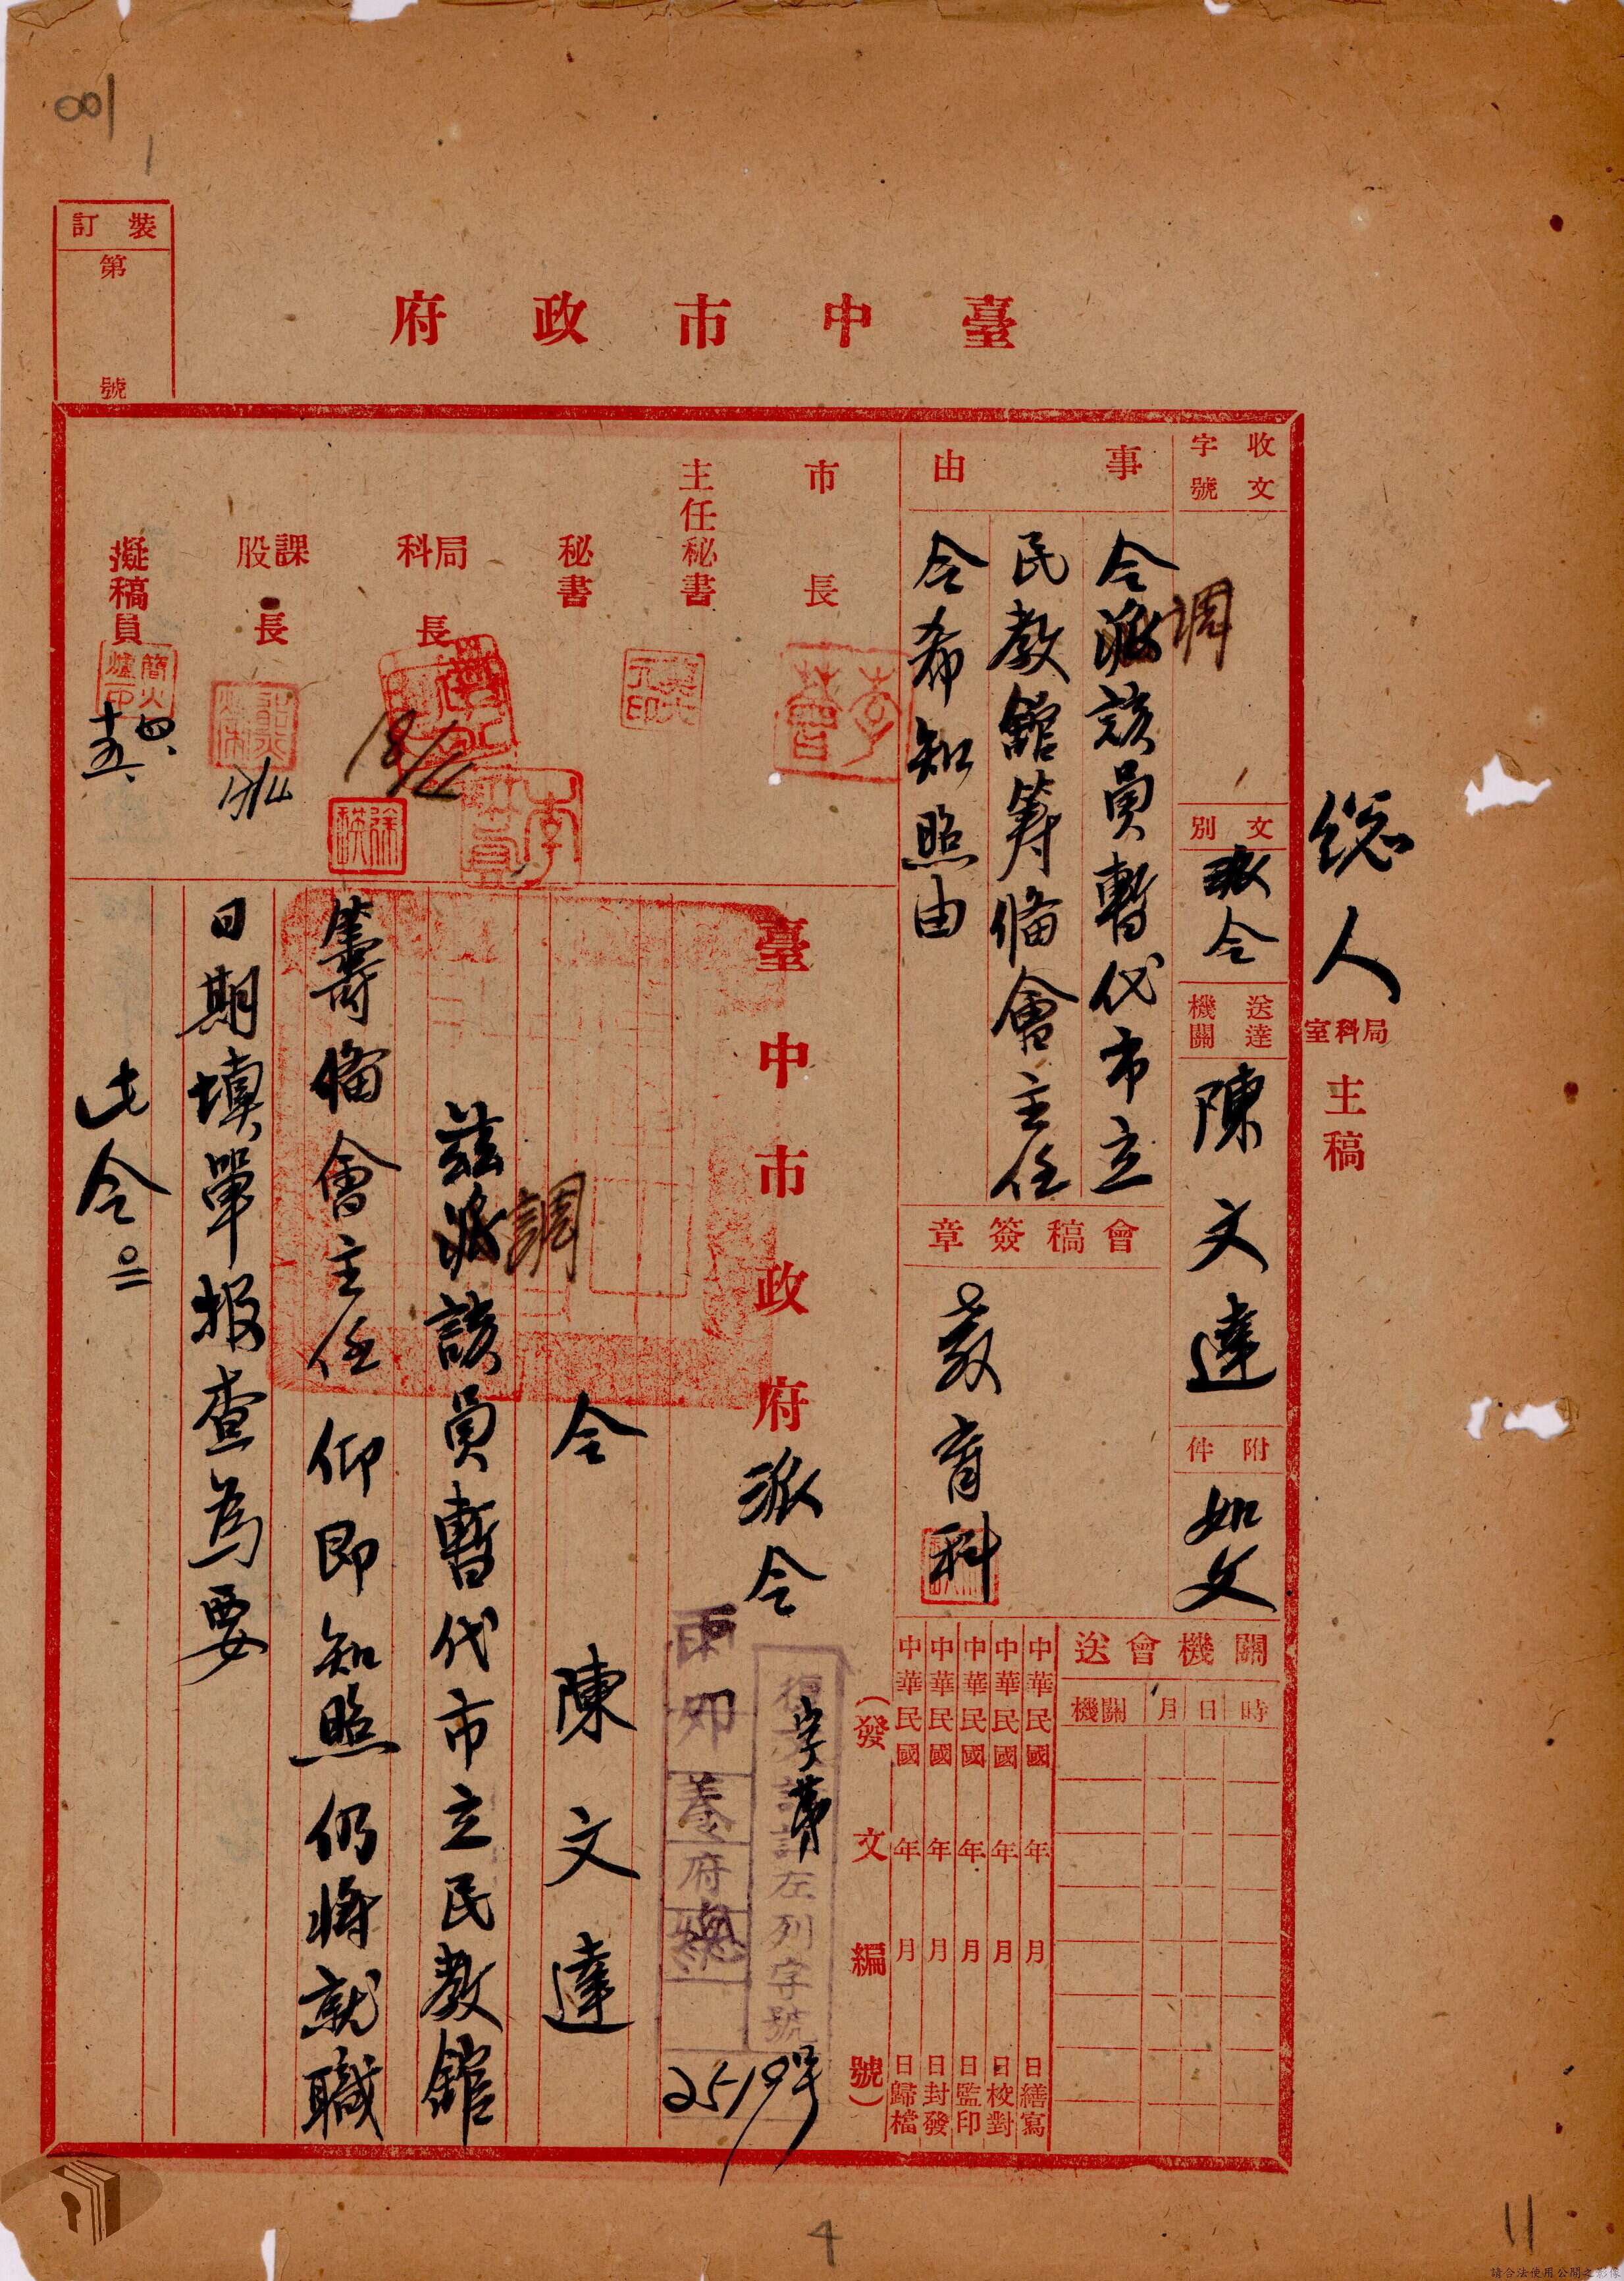 001
1
裝訂
第
號
臺中市政府
總人
局科室
主稿
收文
字號
文別
派令
送達
機關
陳文達
附件
如文
事由
令派該員暫代市立
調
民教館籌備會主任
令希知照由
會稿簽章
教育科
關機會送
時
日
月
機關
中華民國 年 月 日繕寫
中華民國 年 月 日校對
中華民國 年 月 日監印
中華民國 年 月 日封發
中華民國 年 月 日歸檔
(發文編號)
市長
主任秘書
秘書
局科長
18/4
課股長
擬稿員
簡火爐印
四、
十五、
臺中市政府派令
字第
左列字號
府
總
2519號
令 陳文達
茲派該員暫代市立民教館
調
籌備會主任仰即知照仍將就職
日期填單報查為要
此令。
4
11
請合法使用公開之影像